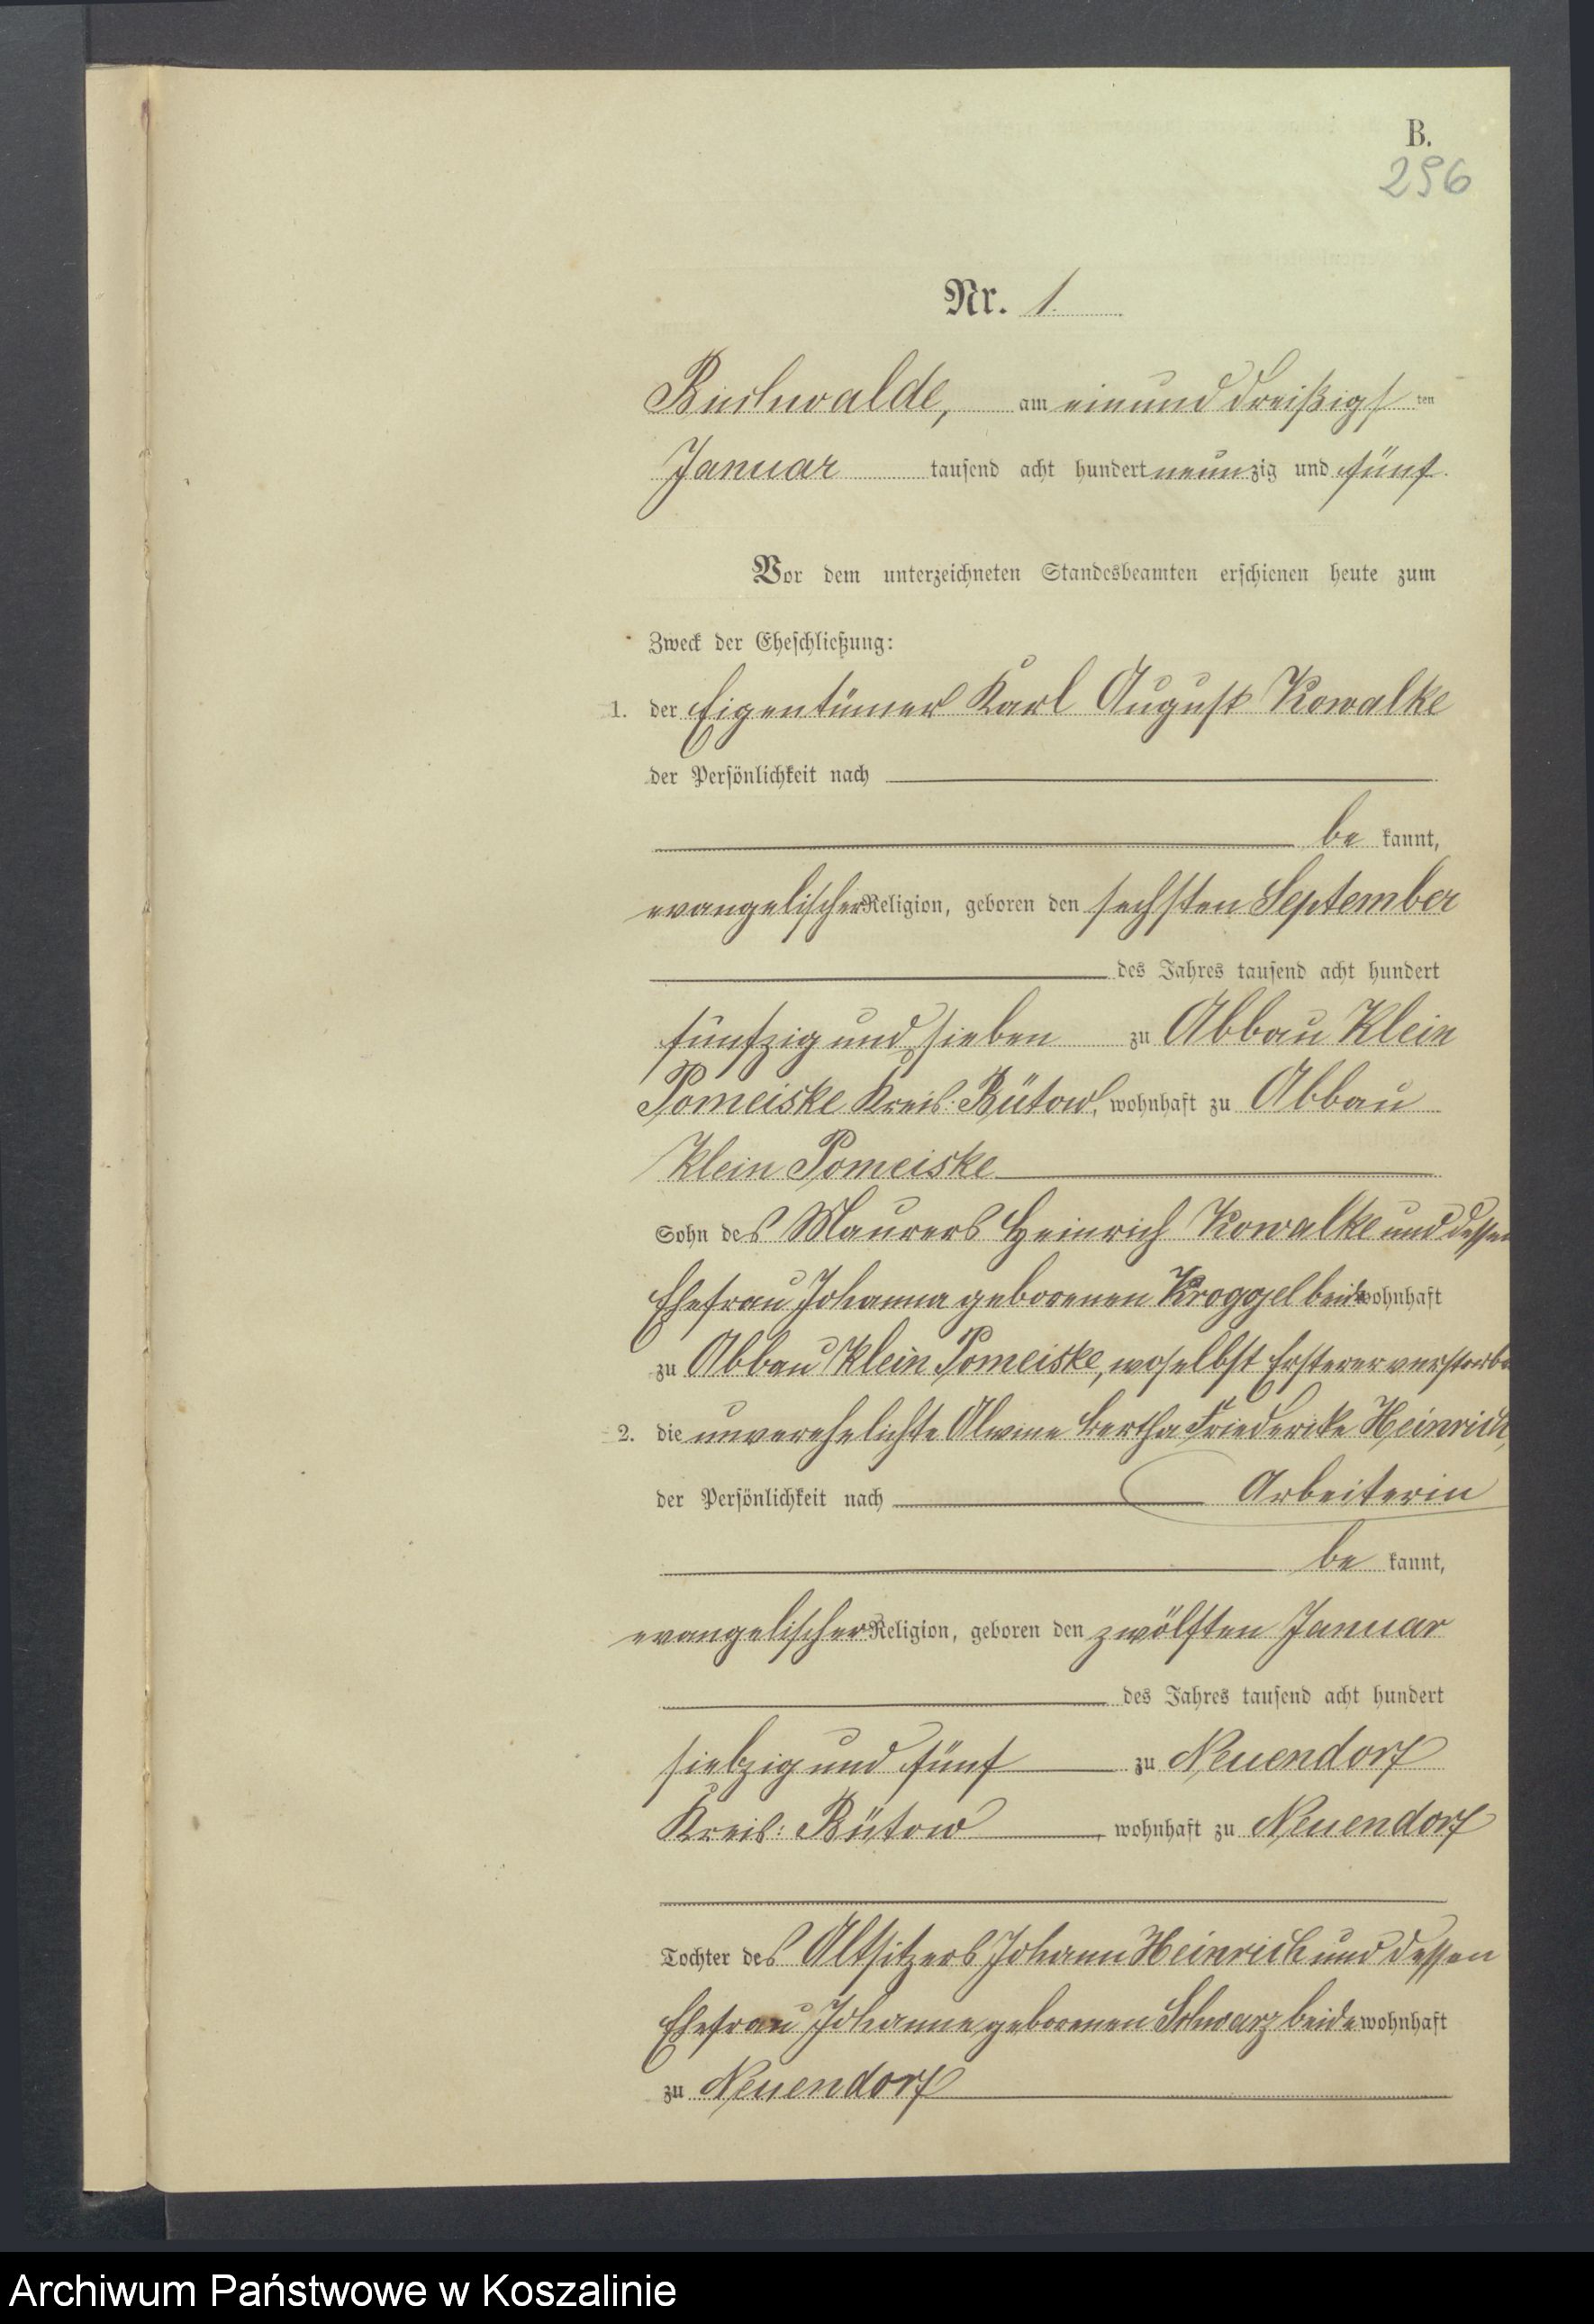 B.
296
Nr. 1.
Buchwalde, am einunddreißigsten
Januar tausend acht hundert neunzig und fünf.
Vor dem unterzeichneten Standesbeamten erschienen heute zum
Zweck der Eheschließung:
1. der Eigentümer Karl August Kowalke
der Persönlichkeit nach
be kannt,
evangelischer Religion, geboren den sechsten September
des Jahres tausend acht hundert
fünfzig und sieben zu Abbau Klein
Pomeiske Kreis: Bütow, wohnhaft zu Abbau
Klein Pomeiske
Sohn des Maurers Heinrich Kowalke und dessen
Ehefrau Johanna geborenen Kroggel beide wohnhaft
zu Abbau Klein Pomeiske, woselbst Ersterer verstorbe
2. die unverehelichte Alwine Bertha Friedericke Heinrich,
der Persönlichkeit nach Arbeiterin
be kannt,
evangelischer Religion, geboren den zwölften Januar
des Jahres tausend acht hundert
siebzig und fünf zu Neuendorf
Kreis: Bütow, wohnhaft zu Neuendorf
Tochter des Altsitzers Johann Heinrich und dessen
Ehefrau Johanne geborenen Schwarz beide wohnhaft
zu Neuendorf
Archiwum Państwowe w Koszalinie